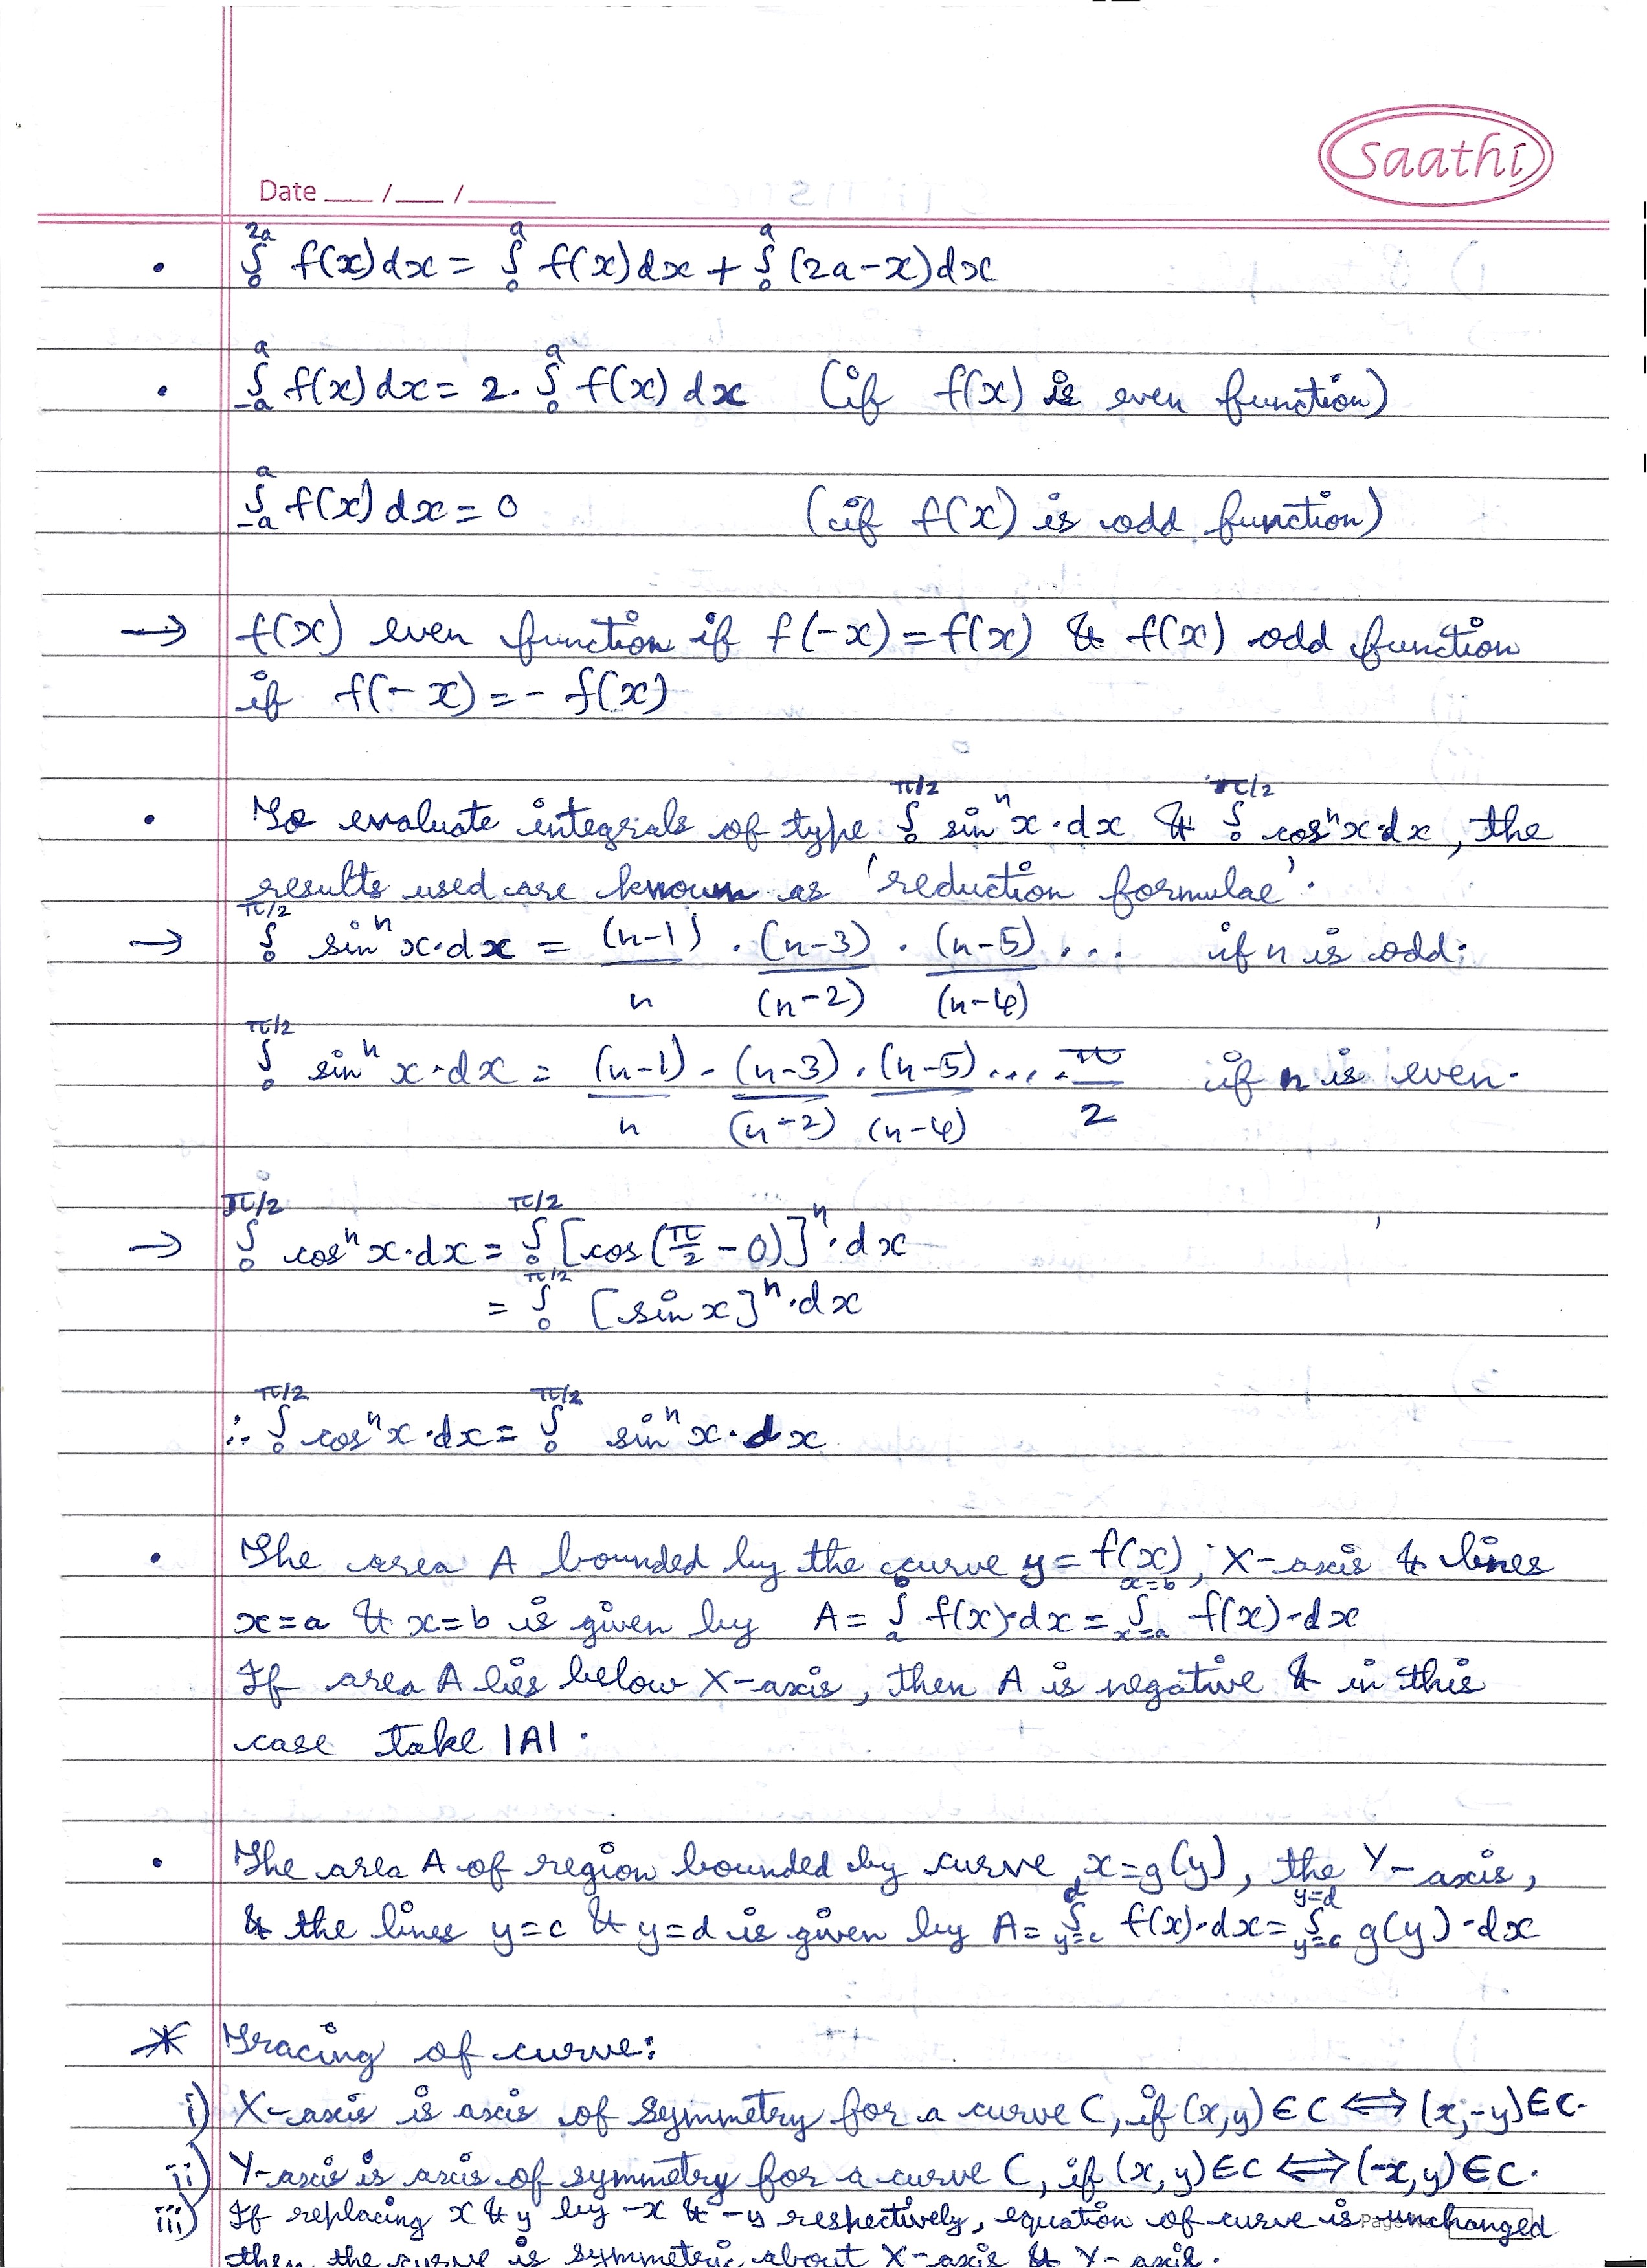 saathi
Date ___/___/______
• ∫₀^2a f(x)dx = ∫₀^a f(x)dx + ∫₀^a (2a-x)dx
• ∫₋ₐ^a f(x)dx = 2. ∫₀^a f(x) dx (if f(x) is even function)
∫₋ₐ^a f(x) dx = 0 (if f(x) is odd function)
→ f(x) even function if f(-x) = f(x) & f(x) odd function
if f(-x) = - f(x)
• To evaluate integrals of type ∫₀^π/2 sinⁿx·dx & ∫₀^π/2 cosⁿx·dx, the
results used are known as 'reduction formulae'.
→ ∫₀^π/2 sinⁿx·dx = (n-1)/n · (n-3)/(n-2) · (n-5)/(n-4) ... if n is odd;
∫₀^π/2 sinⁿx·dx = (n-1)/n · (n-3)/(n-2) · (n-5)/(n-4) .... π/2 if n is even.
→ ∫₀^π/2 cosⁿx·dx = ∫₀^π/2 [cos(π/2 - 0)]ⁿ·dx
= ∫₀^π/2 [sin x]ⁿ·dx
∴ ∫₀^π/2 cosⁿx·dx = ∫₀^π/2 sinⁿx·dx
• The area A bounded by the curve y = f(x), X-axis & lines
x=a & x=b is given by A = ∫ₐ^b f(x)·dx = ∫_{x=a}^{x=b} f(x)·dx
If area A lies below X-axis, then A is negative & in this
case take |A|.
• The area A of region bounded by curve x=g(y), the Y-axis,
& the lines y=c & y=d is given by A = ∫_{y=c}^d f(x)·dx = ∫_{y=c}^{y=d} g(y)·dx
* Tracing of curve:
i) X-axis is axis of symmetry for a curve C, if (x,y) ∈ C ⟺ (x,-y) ∈ C.
ii) Y-axis is axis of symmetry for a curve C, if (x,y) ∈ C ⟺ (-x,y) ∈ C.
iii) If replacing x & y by -x & -y respectively, equation of curve is unchanged
then the curve is symmetric about X-axis & Y-axis.